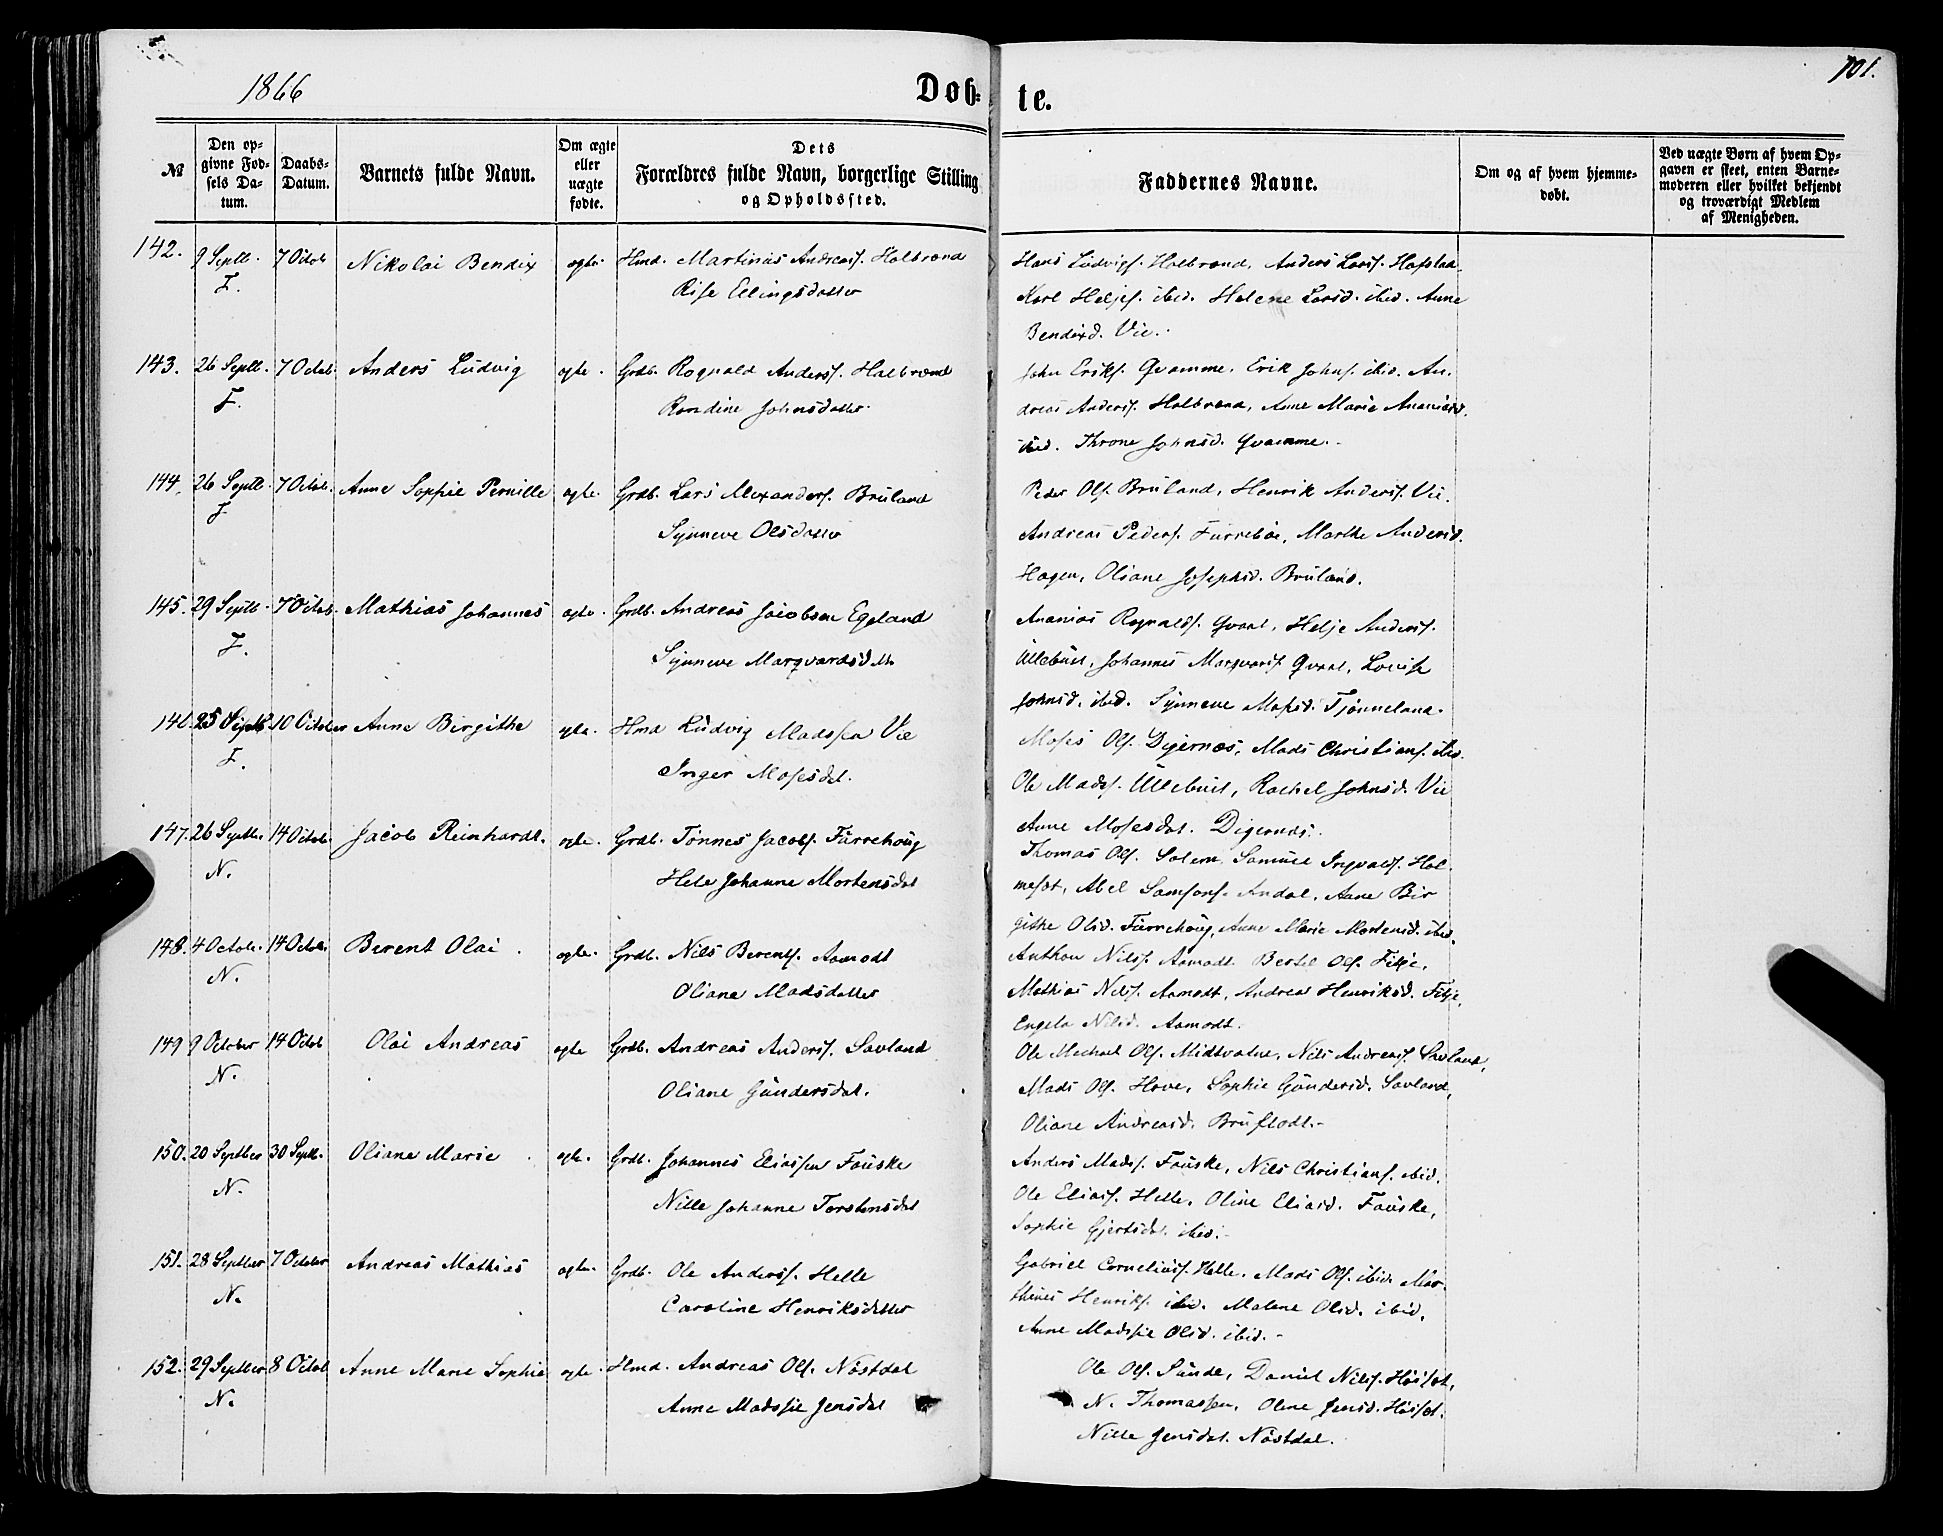 1866
Døb-
te.
101.
№
Den op-
givne Fød-
sels Da-
tum.
Daabs-
Datum.
Barnets fulde Navn.
Om ægte
eller
uægte
fødte.
Dets
Forældres fulde Navn, borgerlige Stilling
og Opholdssted.
Faddernes Navne.
Om og af hvem hjemme-
døbt.
Ved uægte Børn af hvem Op-
gaven er skeet, enten Barne-
moderen eller hvilket bekjendt
og troværdigt Medlem
af Menigheden.
142. 9 Septb. 7 Octob Nikolai Bendix ægte Hmd. Martinus Andreass. Halbrend
F. Rise Ellingsdatter
Hans Ludvigs. Halbrend, Anders Larss. Hafstad
Karl Heljes. ibid. Helene Larsd. ibid. Anne
Bendixd. Vie.
143. 26 Septb. 7 Octob. Anders Ludvig ægte. Grdb. Rognald Anderss. Halbrend
F. Rondine Johnsdatter
John Eriks. Qvamme. Erik Johns. ibid. An-
dreas Anderss. Halbrend, Anne Marie Ananiasd.
ibid. Throne Johnsd. Qvamme.
144. 26 Septb. 7 Octob. Anne Sophie Pernille ægte. Grdb. Lars Alexanders. Bruland
F. Synneve Olsdatter
Peder Ols. Bruland, Henrik Anderss. Vie.
Andreas Peders. Furrebøe, Marthe Andersd.
Hagen, Oliane Josephsd. Bruland.
145. 29 Septb. 7 Octob. Mathias Johannes ægte. Grdb. Andreas Jacobsen Egeland
F. Synneve Marqvardsdtr
Ananias Rognalds. Qvaal, Helje Anders.
Ullebust, Johannes Marqvards. Qvaal, Lovise
Johnsd. ibid. Synneve Mosesd. Tjønneland.
146. 25 Septb. 10 October Anne Birgithe ægte. Hmd Ludvig Madssen Vie
F. Inger Mosesdat.
Moses Ols. Digernæs, Mads Christians. ibid.
Ole Madss. Ullebust, Rachel Johnsd. Vie
Anne Mosesdat. Digernæs.
147. 26 Septbr. 14 Octob. Jacob Reinhardt. ægte. Grdb. Tønnes Jacobs. Furrehoug
N. Hele Johanne Mortensdat
Thomas Ols. Solem, Samuel Ingvalds. Hol-
meset, Abel Samsons. Indal, Anne Bir
githe Olsd. Furrehoug, Anne Marie Mortensd. ibid.
148. 4 Octob. 14 Octob. Berent Olai. ægte. Grdb. Nils Berents. Aamodt
N. Oliane Madsdatter
Anthon Nilss. Aamodt. Bertel Ols. Fitje,
Mathias Nilss. Aamodt, Andrea Henriksd. Fitje,
Engela Nilsd. Aamodt.
149 9 October 14 Octob Olai Andreas ægte Grdb. Andreas Anderss. Savland
N. Oliane Gundersdat.
Ole Mechael Ols. Midtvatne, Nils Andreass. Savland,
Mads Ols. Hove, Sophie Gundersd. Savland,
Oliane Andreasd. Bruflodt.-
150. 20 Septber 30 Septb. Oliane Marie. ægte. Grdb. Johannes Eliassen Fauske
N. Nille Johanne Torstensdat
Anders Madss. Fauske, Nils Christians. ibid.
Ole Eliass. Helle, Oline Eliasd. Fauske,
Sophie Gjertsdat. ibid.-
151. 28 Septber 7 October Andreas Mathias ægte. Grdb. Ole Anderss. Helle
N. Caroline Henriksdatter
Gabriel Cornelius. Helle, Mads Ols. ibid. Mar-
thines Henriks. ibid. Malene Olsd. ibid.
Anne Madssie Olsd. ibid.-
152. 29 Septber 8 Octob Anne Marie Sophie ægte. Hmd. Andreas Ols. Nøstdal
N. Anne Madssie Jensdat
Ole Ols. Sunde, Daniel Nilss. Høiset,
N. Thomassen, Oline Jensd. Høiset.
Nille Jensdat. Nøstdal.